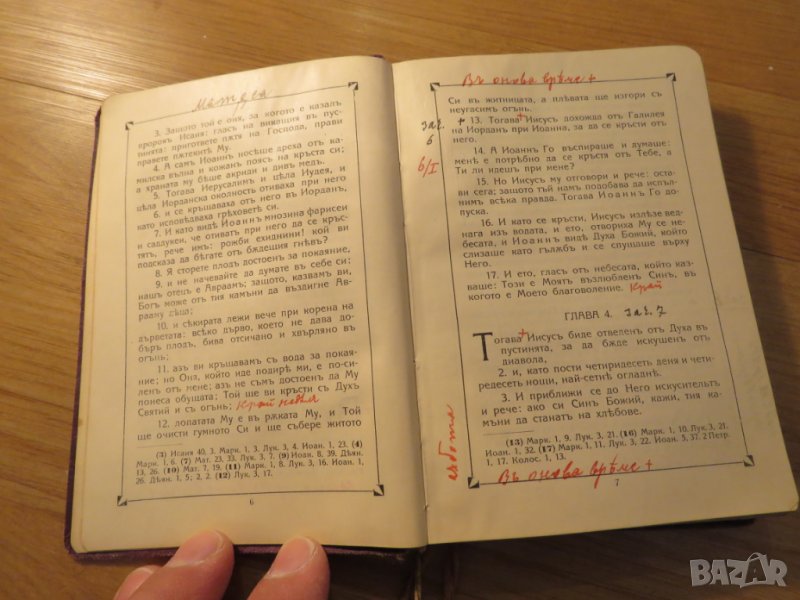 Матѳеа
3. Защото той е оня, за когото е казал
пророкъ Исаия: гласъ на викащия въ пус-
тинята: пригответе пѫтя на Господа, прави
правете пѫтекитѣ Му.
4. А самъ Иоаннъ носѣше дреха отъ ка-
милска вълна и кожанъ поясъ на кръста си;
а храната му бѣше акриди и дивъ медъ.
5. Тогава Иерусалимъ и цѣла Иудея, и
цѣла Иорданска околность отиваха при него
6. и се кръщаваха отъ него въ Иорданъ,
като изповѣдваха грѣховетѣ си.
7. И като видѣ Иоаннъ мнозина фарисеи
и саддукеи, че отиватъ при него да се кръс-
тятъ, рече имъ: рожби ехиднини! кой ви
подсказа да бѣгате отъ бѫдещия гнѣвъ?
8. И сторете плодъ достоенъ за покаяние,
9. и не начевайте да думате въ себе си:
нашъ отецъ е Авраамъ; защото, казвамъ ви,
Богъ може отъ тия камъни да въздигне Ав-
рааму деца;
10. и сѣкирата лежи вече при корена на
дърветата: всѣко дърво, което не дава до-
бъръ плодъ, бива отсичано и хвърляно въ
огънь;
11. азъ ви кръщавамъ съ вода за покая-
ние; но Оня, който иде подирѣ ми, е по-си-
ленъ отъ мене; азъ не съмъ достоенъ да Му
понеса обущата; Той ще ви кръсти съ Духъ
Святий и съ огънь; Край недѣля
12. лопатата Му е въ рѫката Му, и Той
ще очисти гумното Си и ще събере житото
(3) Исаия 40, 3. Марк. 1, 3. Лук. 3, 4. Иоан. 1, 23. (4)
Марк. 1, 6. (7) Мат. 23, 33. Лук. 3, 7. (9) Иоан. 8, 39. Дѣян.
13, 26. (10) Мат. 7, 19. (11) Марк. 1, 8. Лук. 3, 16. Иоан. 1,
26. Дѣян. 1, 5; 2, 2. (12) Лук. 3, 17.
6
Въ онова врѣме +
Си въ житницата, а плѣвата ще изгори съ
неугасимъ огънь.
Зач. 6
+ 13. Тогава + Иисусъ дохожда отъ Галилея
на Иорданъ при Иоанна, за да се кръсти отъ
него.
6/I
14. А Иоаннъ Го въспираше и думаше:
менѣ е потрѣбно да се кръстя отъ Тебе, а
Ти ли идешъ при мене?
15. Но Иисусъ му отговори и рече: оста-
ви сега; защото тъй намъ подобава да изпъл-
нимъ всѣка правда. Тогава Иоаннъ Го до-
пуска.
16. И като се кръсти, Иисусъ излѣзе вед-
нага изъ водата, и ето, отвориха Му се не-
бесата, и Иоаннъ видѣ Духа Божий, който
слизаше като гълѫбъ и се спущаше върху
Него.
17. И ето, гласъ отъ небесата, който каз-
ваше: Този е Моятъ възлюбленъ Синъ, въ
когото е Моето благоволение. Край
ГЛАВА 4. Зач. 7
Тогава + Иисусъ биде отведенъ отъ Духа въ
пустинята, за да бѫде искушенъ отъ
дявола,
2. и, като пости четиридесеть деня и чети-
редесеть нощи, най-сетнѣ огладнѣ.
3. И приближи се до Него искусительтъ
и рече: ако си Синъ Божий, кажи, тия ка-
мъни да станатъ на хлѣбове.
събота
(13) Марк. 1, 9. Лук. 3, 21. (16) Марк. 1, 10. Лук. 3, 21.
Иоан. 1, 32. (17) Марк. 1, 11. Лук. 3, 22. Иоан. 5, 37. 2 Петр.
1, 17. Колос. 1, 13.
Въ онова врѣме +
7
BAZAR